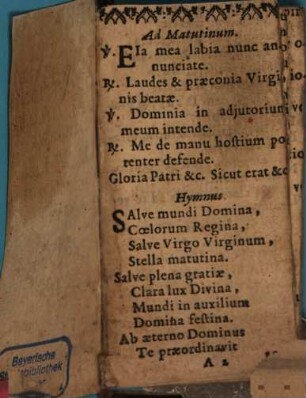 Ad Matutinum.
℣. EIa mea labia nunc an-
nunciate.
℟. Laudes & præconia Virgi
nis beatæ.
℣. Dominia in adjutorium
meum intende.
℟. Me de manu hostium po
tenter defende.
Gloria Patri &c. Sicut erat &c
Hymnus
SAlve mundi Domina,
Cœlorum Regina,
Salve Virgo Virginum,
Stella matutina.
Salve plena gratiæ,
Clara lux Divina,
Mundi in auxilium
Domina festina.
Ab æterno Dominus
Te præordinavit
A 2
Bayerische